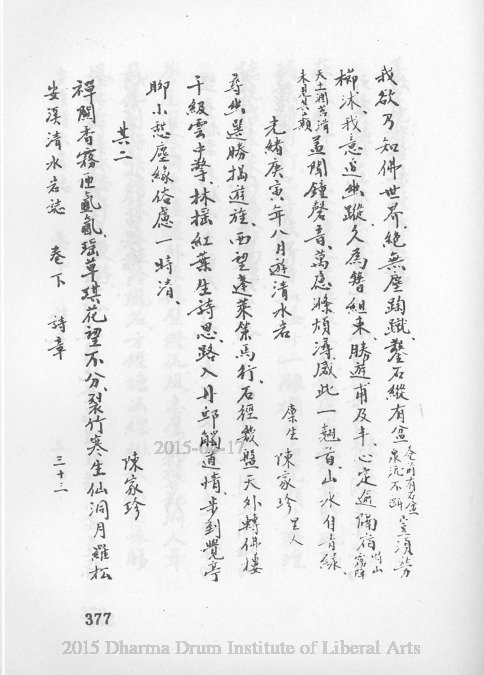 我欲乃知佛世界、絕無塵鞠蹴、鑿石縱有盆 前有石盆泉流不斷 豈須勞
櫛沭、我意追幽蹤、久為簪組束、勝遊甫及半、心定適隔宿
天土潤苔滑未見其巔 盖聞鐘磬音、萬慮滌煩溽、感此一翹首、山水自青綠、
光緒庚寅年八月遊清水岩
廩生 陳家珍 里人
尋幽選勝揭遊旌、西望蓬萊策馬行、石徑幾盤天外轉、佛樓
千級雲中擎、林搖紅葉生詩思、路入丹邱觸道情、步到覺亭
聊小憩、塵緣俗慮一時清、
其二 陳家珍
禪関香霧匝氤氳、瑤草琪花望不分、裂竹寒生仙洞月、羅松
安溪清水岩誌 卷下 詩章 三十三
2015-04-17
377
2015 Dharma Drum Institute of Liberal Arts